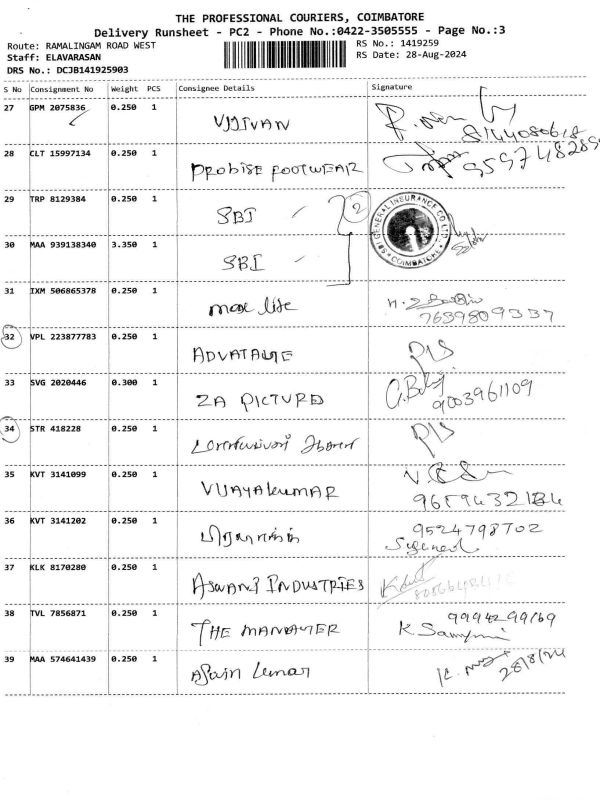 THE PROFESSIONAL COURIERS, COIMBATORE
Delivery Runsheet - PC2 - Phone No.:0422-3505555 - Page No.:3
Route: RAMALINGAM ROAD WEST RS No.: 1419259
Staff: ELAVARASAN RS Date: 28-Aug-2024
DRS No.: DCJB141925903
S No Consignment No Weight PCS Consignee Details Signature
27 GPM 2075836 0.250 1
28 CLT 15997134 0.250 1 FOOTWEAR
29 TRP 8129384 0.250 1 SBI 2
30 MAA 939138340 3.350 1 SBI
SBI GENERAL INSURANCE CO LTD COIMBATORE
31 IXM 506865378 0.250 1 max life
7639809337
32 VPL 223877783 0.250 1
33 SVG 2020446 0.300 1 ZA PICTURES
9003961109
34 STR 418228 0.250 1
35 KVT 3141099 0.250 1 VIJAYAKUMAR
36 KVT 3141202 0.250 1 9524798702
37 KLK 8170280 0.250 1 ASWANI INDUSTRIES
38 TVL 7856871 0.250 1 THE MANAGER 9994299169
39 MAA 574641439 0.250 1 kumar
28/8/24